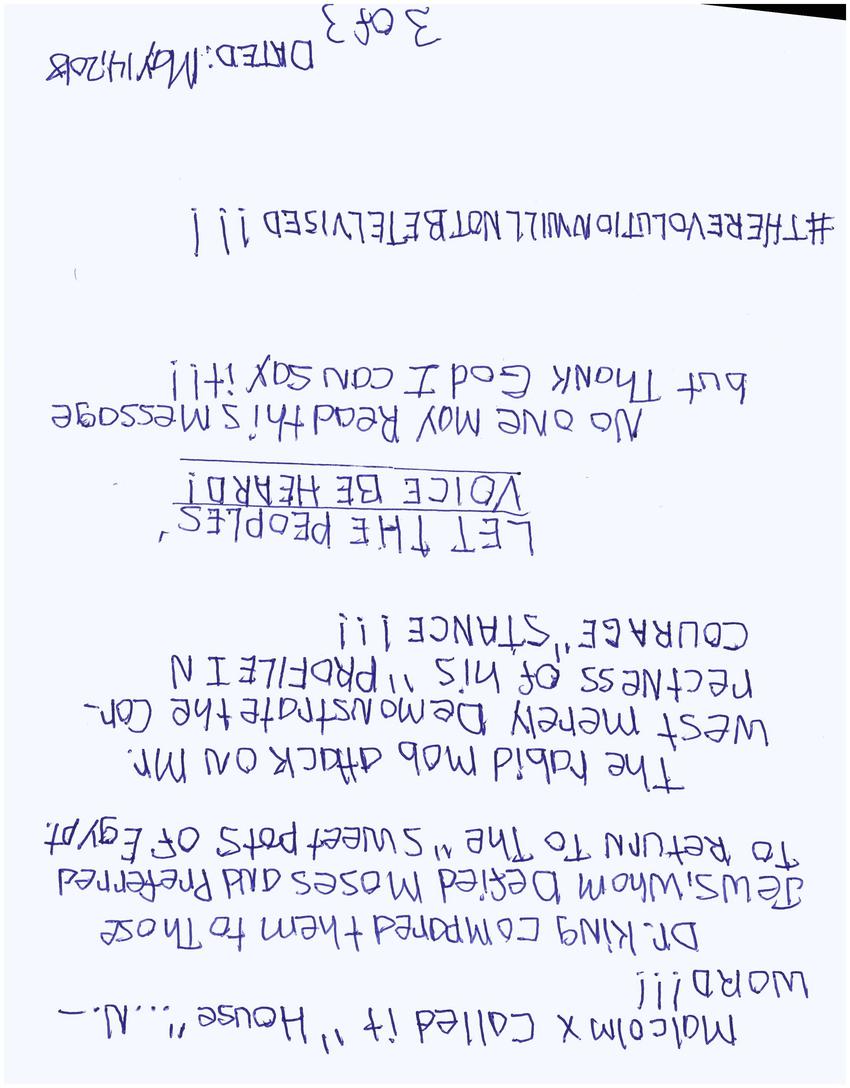 Malcolm X Called it "House "...N.—
WORD!!!
Dr. King compared them to Those
Jews, Whom Defied Moses and Preferred
To Return To The "Sweet pots of Egypt.
The rabid mob attack on Mr.
West merely Demonstrate the Cor-
rectness of his "PROFILE IN
COURAGE" STANCE!!!
LET THE PEOPLES'
VOICE BE HEARD!
No one may Read this Message
but Thank God I can say it!!
#THEREVOLUTIONWILLNOTBETELVISED!!!
DATED: May 14, 2018
3 of 3